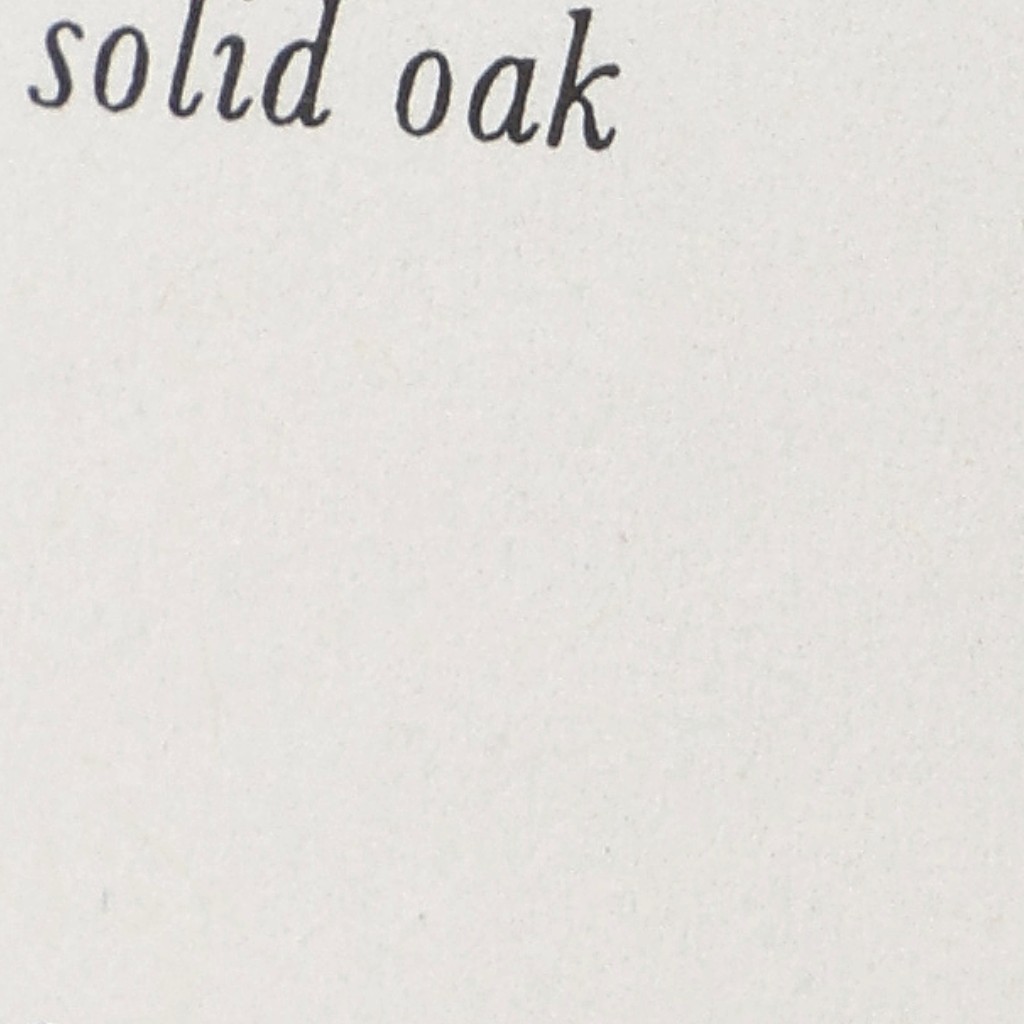 solid oak